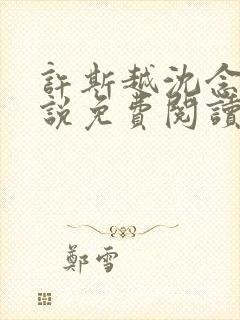 許斯越沈念
說免費閱讀
鄭雪